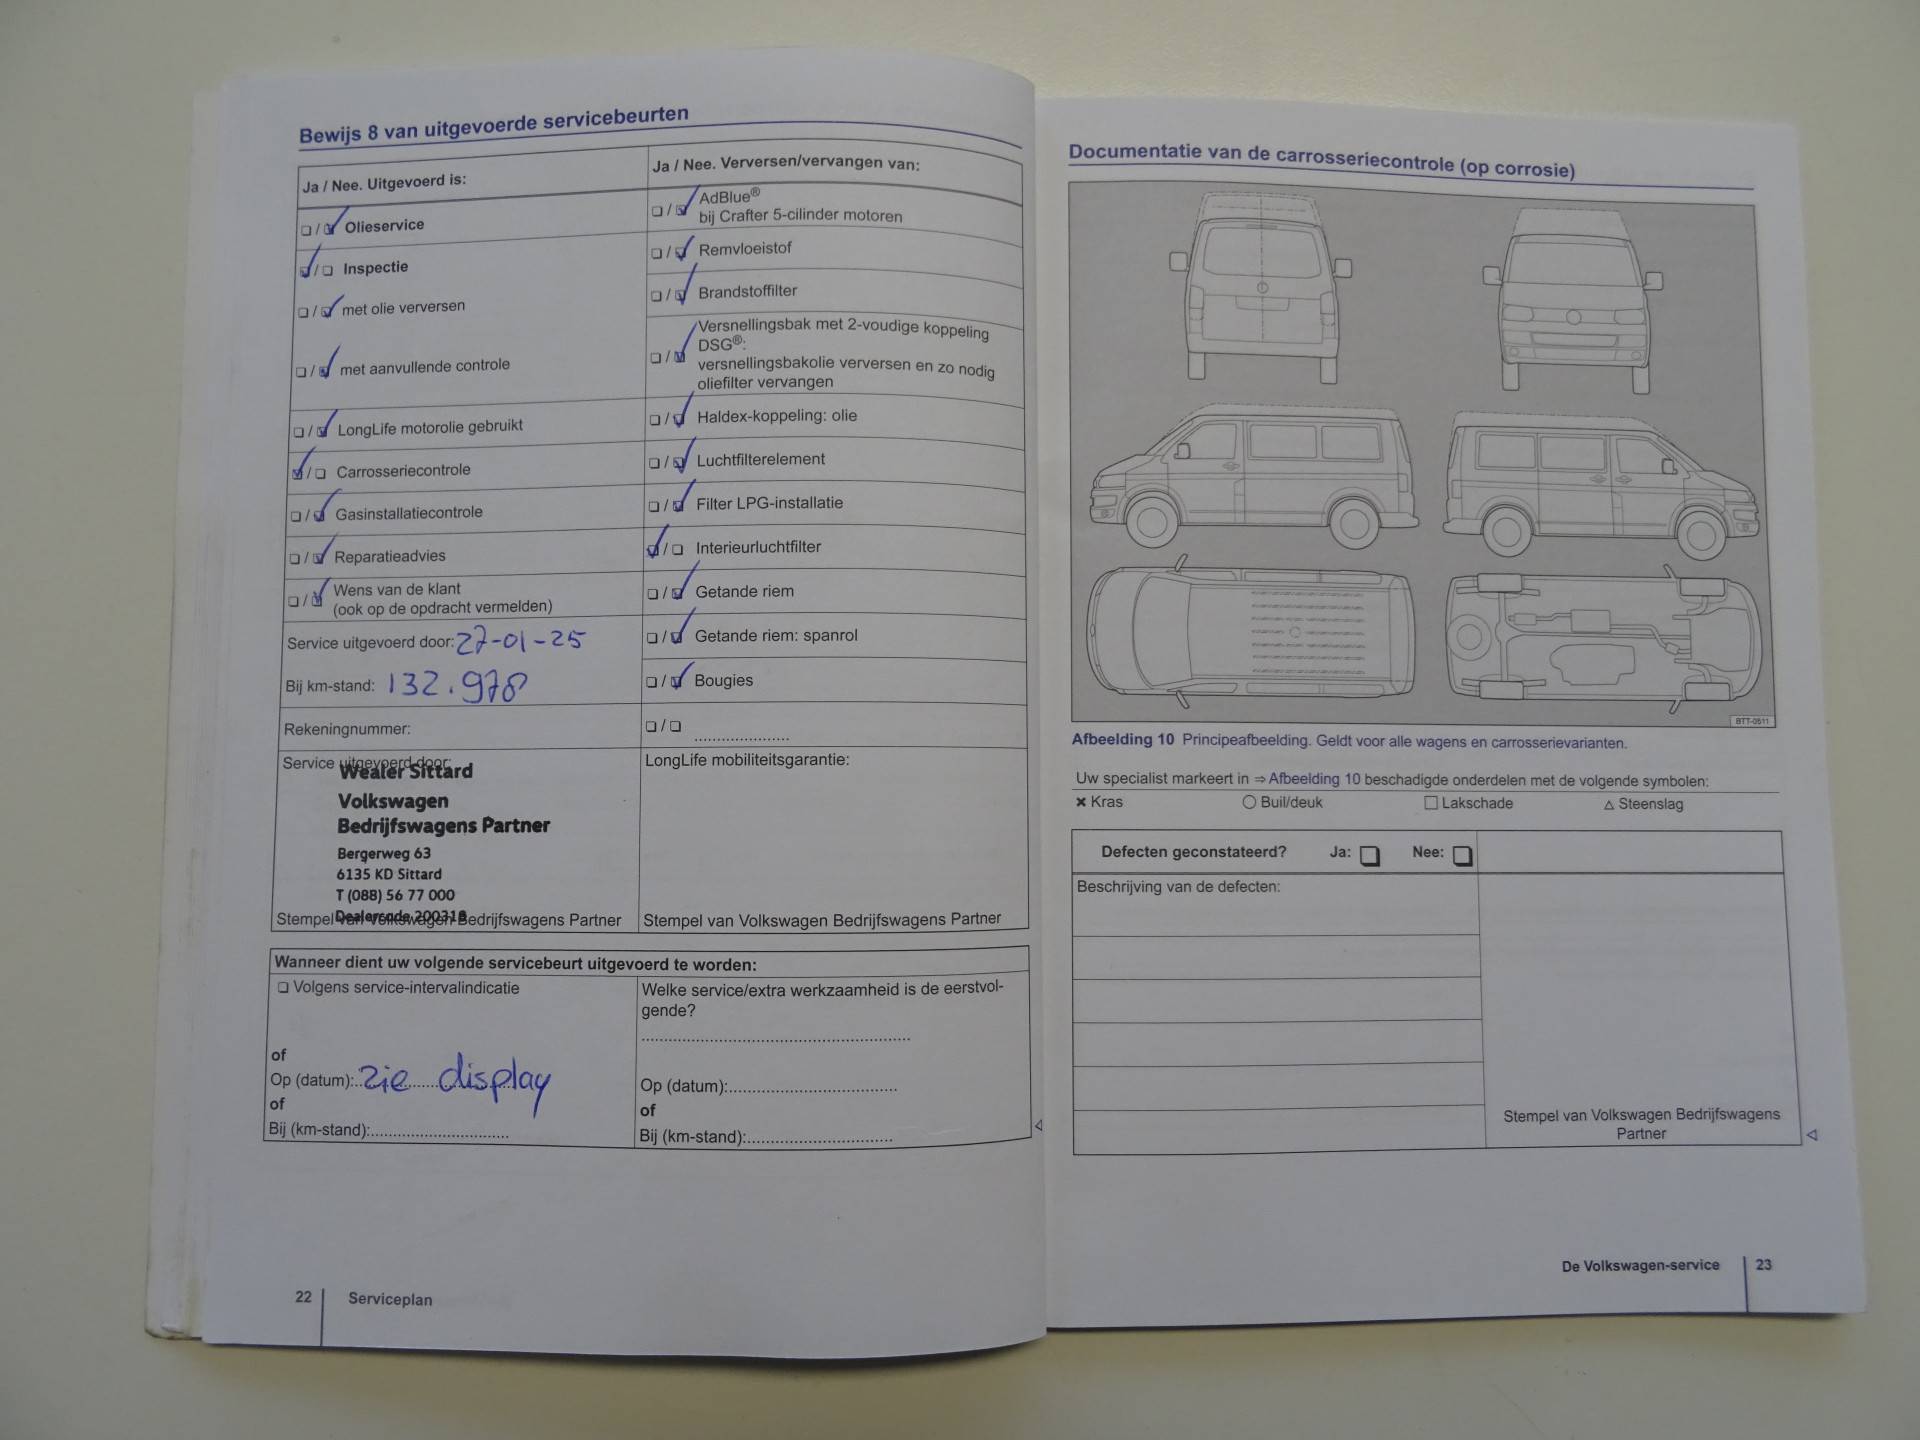 Bewijs 8 van uitgevoerde servicebeurten
Ja / Nee. Uitgevoerd is:
Olieservice
Inspectie
met olie verversen
met aanvullende controle
LongLife motorolie gebruikt
Carrosseriecontrole
Gasinstallatiecontrole
Reparatieadvies
Wens van de klant
(ook op de opdracht vermelden)
Service uitgevoerd door: 27-01-25
Bij km-stand: 132.978
Rekeningnummer:
Service uitgevoerd door:
Wealer Sittard
Volkswagen
Bedrijfswagens Partner
Bergerweg 63
6135 KD Sittard
T (088) 56 77 000
Dealercode 200318
Stempel van Volkswagen Bedrijfswagens Partner
Ja / Nee. Verversen/vervangen van:
AdBlue®
bij Crafter 5-cilinder motoren
Remvloeistof
Brandstoffilter
Versnellingsbak met 2-voudige koppeling
DSG®:
versnellingsbakolie verversen en zo nodig
oliefilter vervangen
Haldex-koppeling: olie
Luchtfilterelement
Filter LPG-installatie
Interieurluchtfilter
Getande riem
Getande riem: spanrol
Bougies
LongLife mobiliteitsgarantie:
Stempel van Volkswagen Bedrijfswagens Partner
Wanneer dient uw volgende servicebeurt uitgevoerd te worden:
Volgens service-intervalindicatie
of
Op (datum): zie display
of
Bij (km-stand):
Welke service/extra werkzaamheid is de eerstvol-
gende?
Op (datum):
of
Bij (km-stand):
22 Serviceplan
Documentatie van de carrosseriecontrole (op corrosie)
BTT-0511
Afbeelding 10 Principeafbeelding. Geldt voor alle wagens en carrosserievarianten.
Uw specialist markeert in ⇒ Afbeelding 10 beschadigde onderdelen met de volgende symbolen:
× Kras ○ Buil/deuk □ Lakschade △ Steenslag
Defecten geconstateerd? Ja: Nee:
Beschrijving van de defecten:
Stempel van Volkswagen Bedrijfswagens
Partner
De Volkswagen-service 23